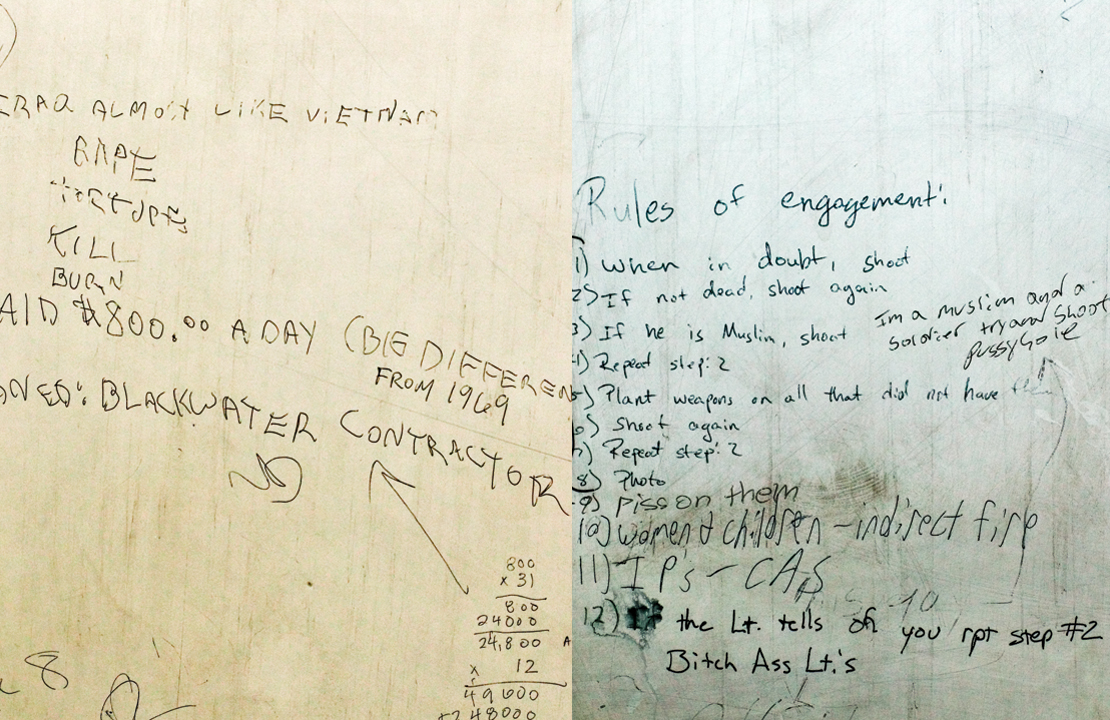 IRAQ ALMOST LIKE VIETNAM
RAPE
tortures
KILL
BURN
AID $800.00 A DAY (BIG DIFFEREN
FROM 1969
ONED: BLACKWATER CONTRACTOR
800
x 31
800
24000
24,800 A
x 12
49600
+248000
8
Rules of engagement:
1) When in doubt, shoot
2) If not dead, shoot again
3) If he is Muslim, shoot
Im a muslim and a
soldier try and shoot
pussyhole
4) Repeat step: 2
5) Plant weapons on all that did not have them
6) Shoot again
7) Repeat step: 2
8) Photo
9) piss on them
10) women & children - indirect fire
11) IP's - CAS
12) If the Lt. tells on you rpt step #2
Bitch Ass Lt.'s